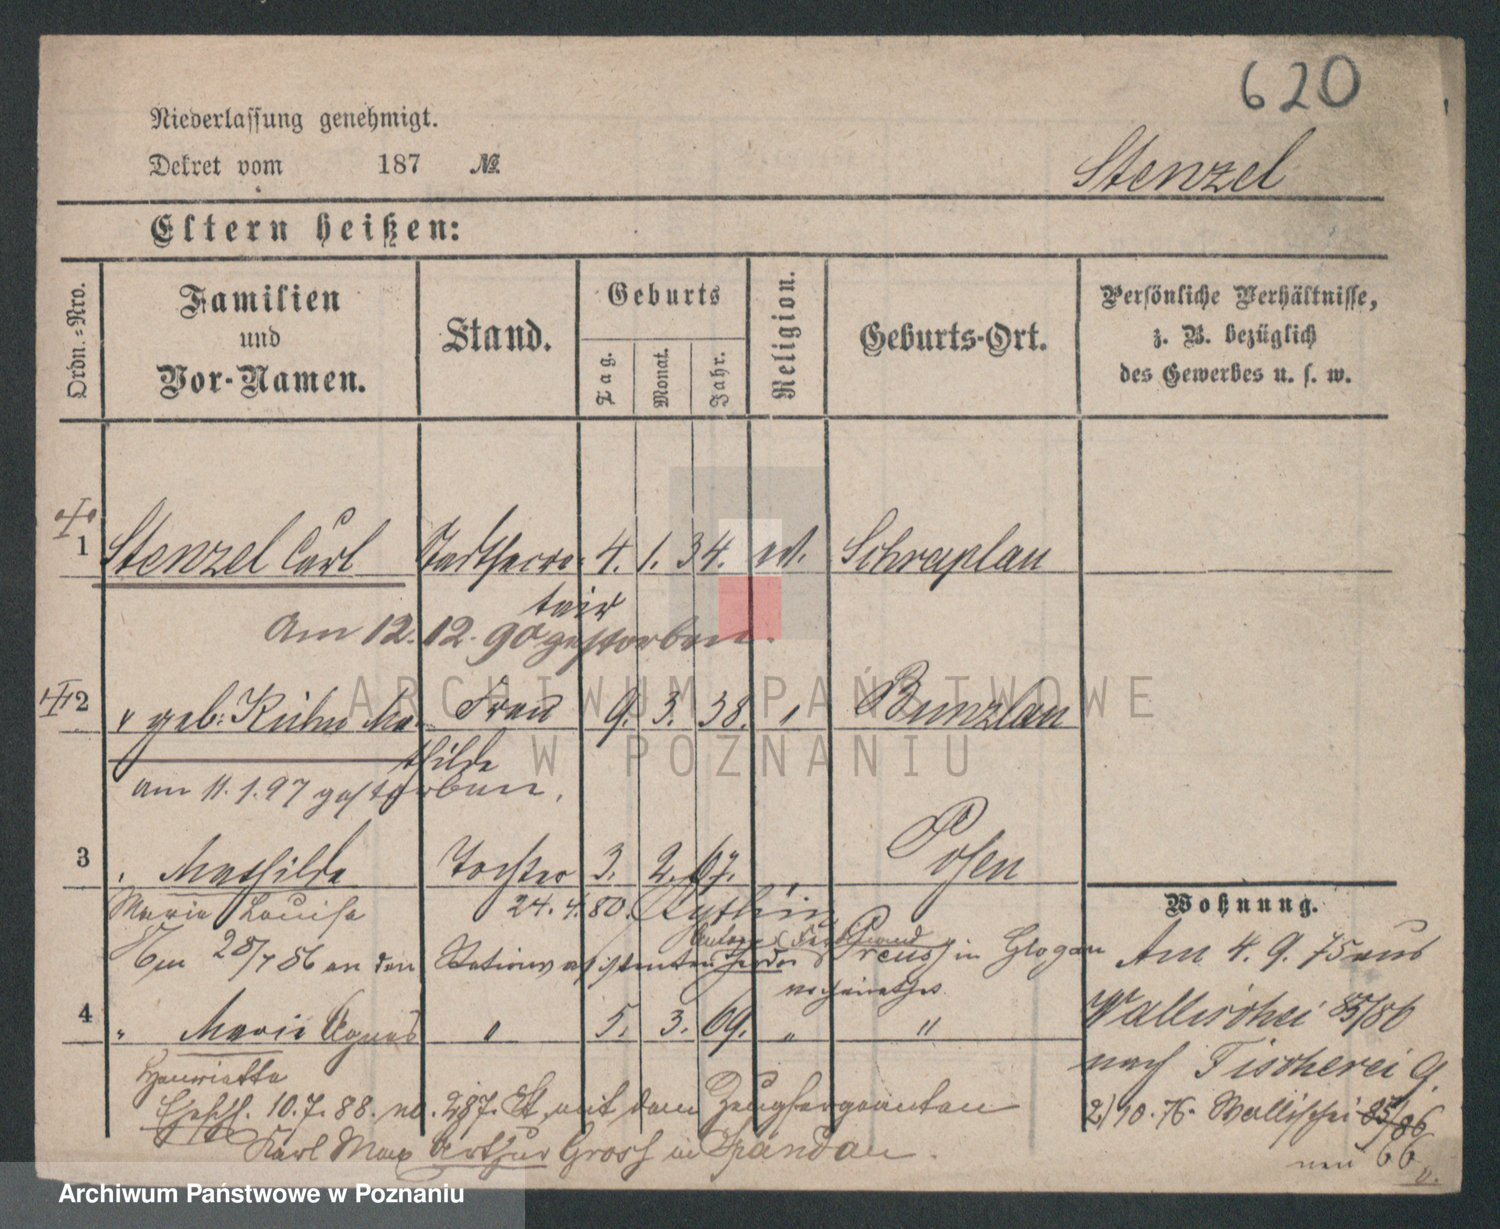 620
Niederlassung genehmigt.
Dekret vom 187 №
Stenzel
Eltern heißen:
Ordn.-Nro.
Familien
und
Vor-Namen.
Stand.
Geburts
Tag.
Monat.
Jahr.
Religion.
Geburts-Ort.
Persönliche Verhältnisse,
z. B. bezüglich
des Gewerbes u. s. w.
1 Stenzel Carl 4. 1. 34. ev. Schraplau
Am 12. 12. 90 gestorben.
2 " geb: Kuhn Ma- Frau 9. 3. 38. " Bunzlau
thilde
am 11.1.97 gestorben.
3 Mathilde Tochter 3. 2. 67. " Posen
Marie Louise 24. 4. 80.
Wohnung.
Am 28/7 86 an den Stationsassistenten Preuss in Glogau
verheirathet.
Am 4. 9. 75 aus
4 " Marie Agnes " 5. 3. 69. " "
Wallischei 85/86
Henriette
nach Fischerei 9.
Ehesch. 10.7.88. No. 287. mit dem Zeugsergeanten
2) 10. 76. Wallischei 85/86
Karl Max Arthur Grosch in Spandau.
66
ARCHIWUM PAŃSTWOWE
W POZNANIU
Archiwum Państwowe w Poznaniu